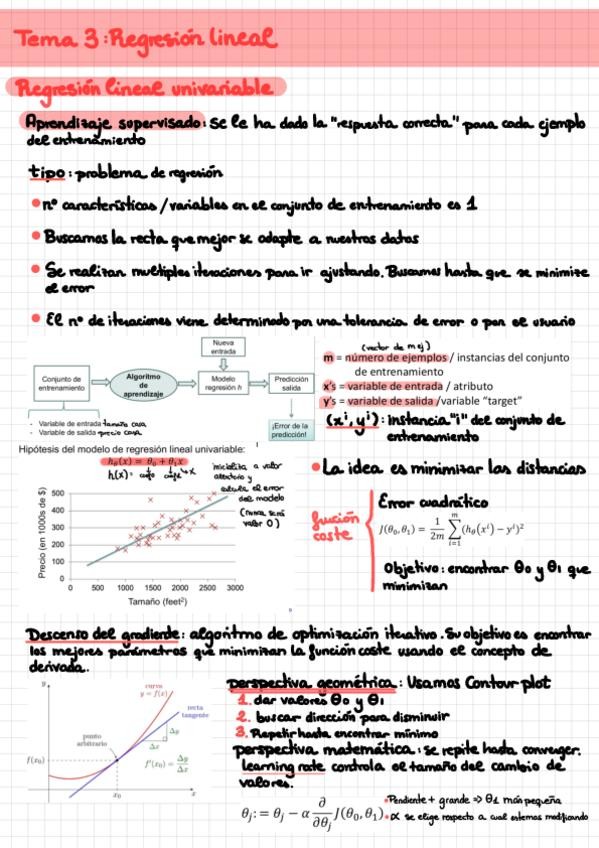 Tema 3: Regresión lineal
Regresión lineal univariable
Aprendizaje supervisado: se le ha dado la "respuesta correcta" para cada ejemplo
del entrenamiento
tipo: problema de regresión
• nº características/variables en el conjunto de entrenamiento es 1
• Buscamos la recta que mejor se adapte a nuestros datos
• Se realizan multiples iteraciones para ir ajustando. Buscamos hasta que se minimize
el error
• El nº de iteraciones viene determinado por una tolerancia de error o por el usuario
Nueva
entrada
Conjunto de
entrenamiento
Algoritmo
de
aprendizaje
Modelo
regresión h
Predicción
salida
- Variable de entrada tamaño casa
- Variable de salida precio casa
¡Error de la
predicción!
(vector de m ej)
m = número de ejemplos / instancias del conjunto
de entrenamiento
x's = variable de entrada / atributo
y's = variable de salida /variable "target"
(xⁱ, yⁱ): instancia "i" del conjunto de
entrenamiento
Hipótesis del modelo de regresión lineal univariable:
hθ(x) = θ₀ + θ₁x
h(x):
inicializa a valor
aleatorio y
calcula el error
del modelo
(nunca será
valor 0)
Precio (en 1000s de $)
500
400
300
200
100
0
0 500 1000 1500 2000 2500 3000
Tamaño (feet²)
• La idea es minimizar las distancias
función
coste
Error cuadrático
J(θ₀, θ₁) = 1/2m ∑ᵢ₌₁ᵐ (hθ(xⁱ) − yⁱ)²
Objetivo: encontrar θ0 y θ1 que
minimizan
Descenso del gradiente: algoritmo de optimización iterativo. Su objetivo es encontrar
los mejores parámetros que minimizan la función coste usando el concepto de
derivada.
y
curva
y = f(x)
recta
tangente
punto
arbitrario
Δy
Δx
f(x₀)
f'(x₀) = Δy/Δx
x₀
x
perspectiva geométrica: Usamos Contour plot
1. dar valores θ0 y θ1
2. buscar dirección para disminuir
3. Repetir hasta encontrar mínimo
perspectiva matemática: se repite hasta converger.
learning rate controla el tamaño del cambio de
valores.
θⱼ := θⱼ − α ∂/∂θⱼ J(θ₀, θ₁)
• Pendiente + grande => θ1 más pequeña
• α se elige respecto a cual estemos modificando